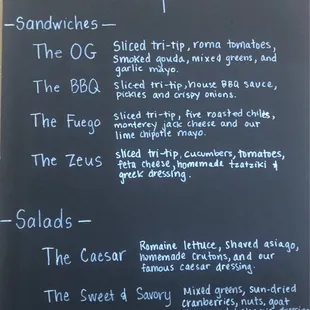 - Sandwiches -
The OG Sliced tri-tip, roma tomatoes,
smoked gouda, mixed greens, and
garlic mayo.
The BBQ Sliced tri-tip, house BBQ sauce,
pickles and crispy onions.
The Fuego sliced tri-tip, fire roasted chiles,
monterey jack cheese and our
lime chipotle mayo.
The Zeus sliced tri-tip, cucumbers, tomatoes,
feta cheese, homemade tzatziki &
greek dressing.
- Salads -
The Caesar Romaine lettuce, shaved asiago,
homemade crutons, and our
famous caesar dressing.
The Sweet & Savory Mixed greens, sun-dried
cranberries, nuts, goat